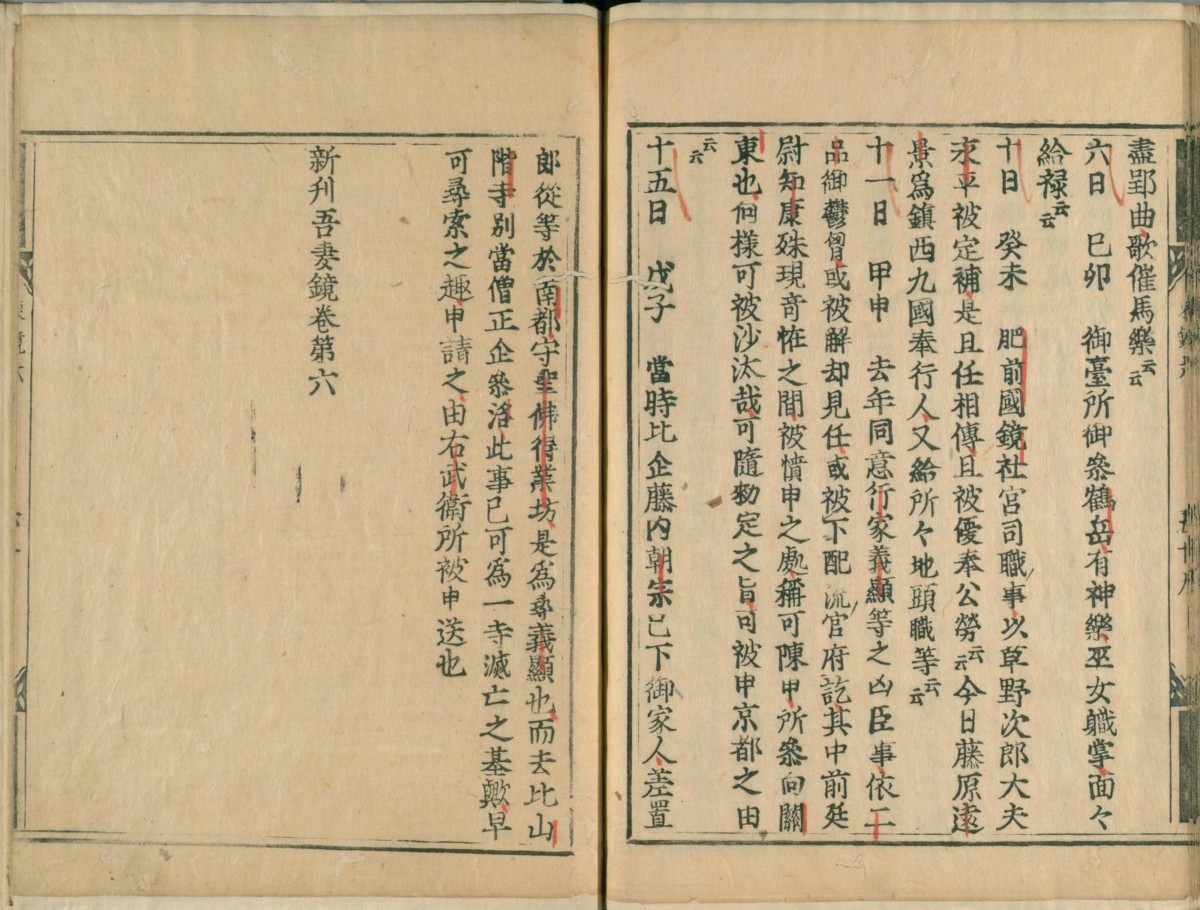 盡郢曲歌催馬樂云云
六日　巳卯　御臺所御參鶴岳有神樂巫女職掌面々
給禄云云
十日　癸未　肥前國鏡社宮司職事以草野次郎大夫
永平被定補是且任相傳且被優奉公勞云云今日藤原遠
景爲鎮西九國奉行人又給所々地頭職等云云
十一日　甲申　去年同意行家義顯等之凶臣事依二
品御鬱胷或被解却見任或被下配流官府訖其中前廷
尉知康殊現奇恠之間被憤申之處稱可陳申所參向關
東也何樣可被沙汰哉可隨勑定之旨可被申京都之由
云云
十五日　戊子　當時比企藤内朝宗已下御家人差置
郎從等於南都守聖佛得業坊是爲尋義顯也而去比山
階寺別當僧正企參洛此事已可爲一寺滅亡之基歟早
可尋索之趣申請之由右武衛所被申送也
新刊吾妻鏡卷第六